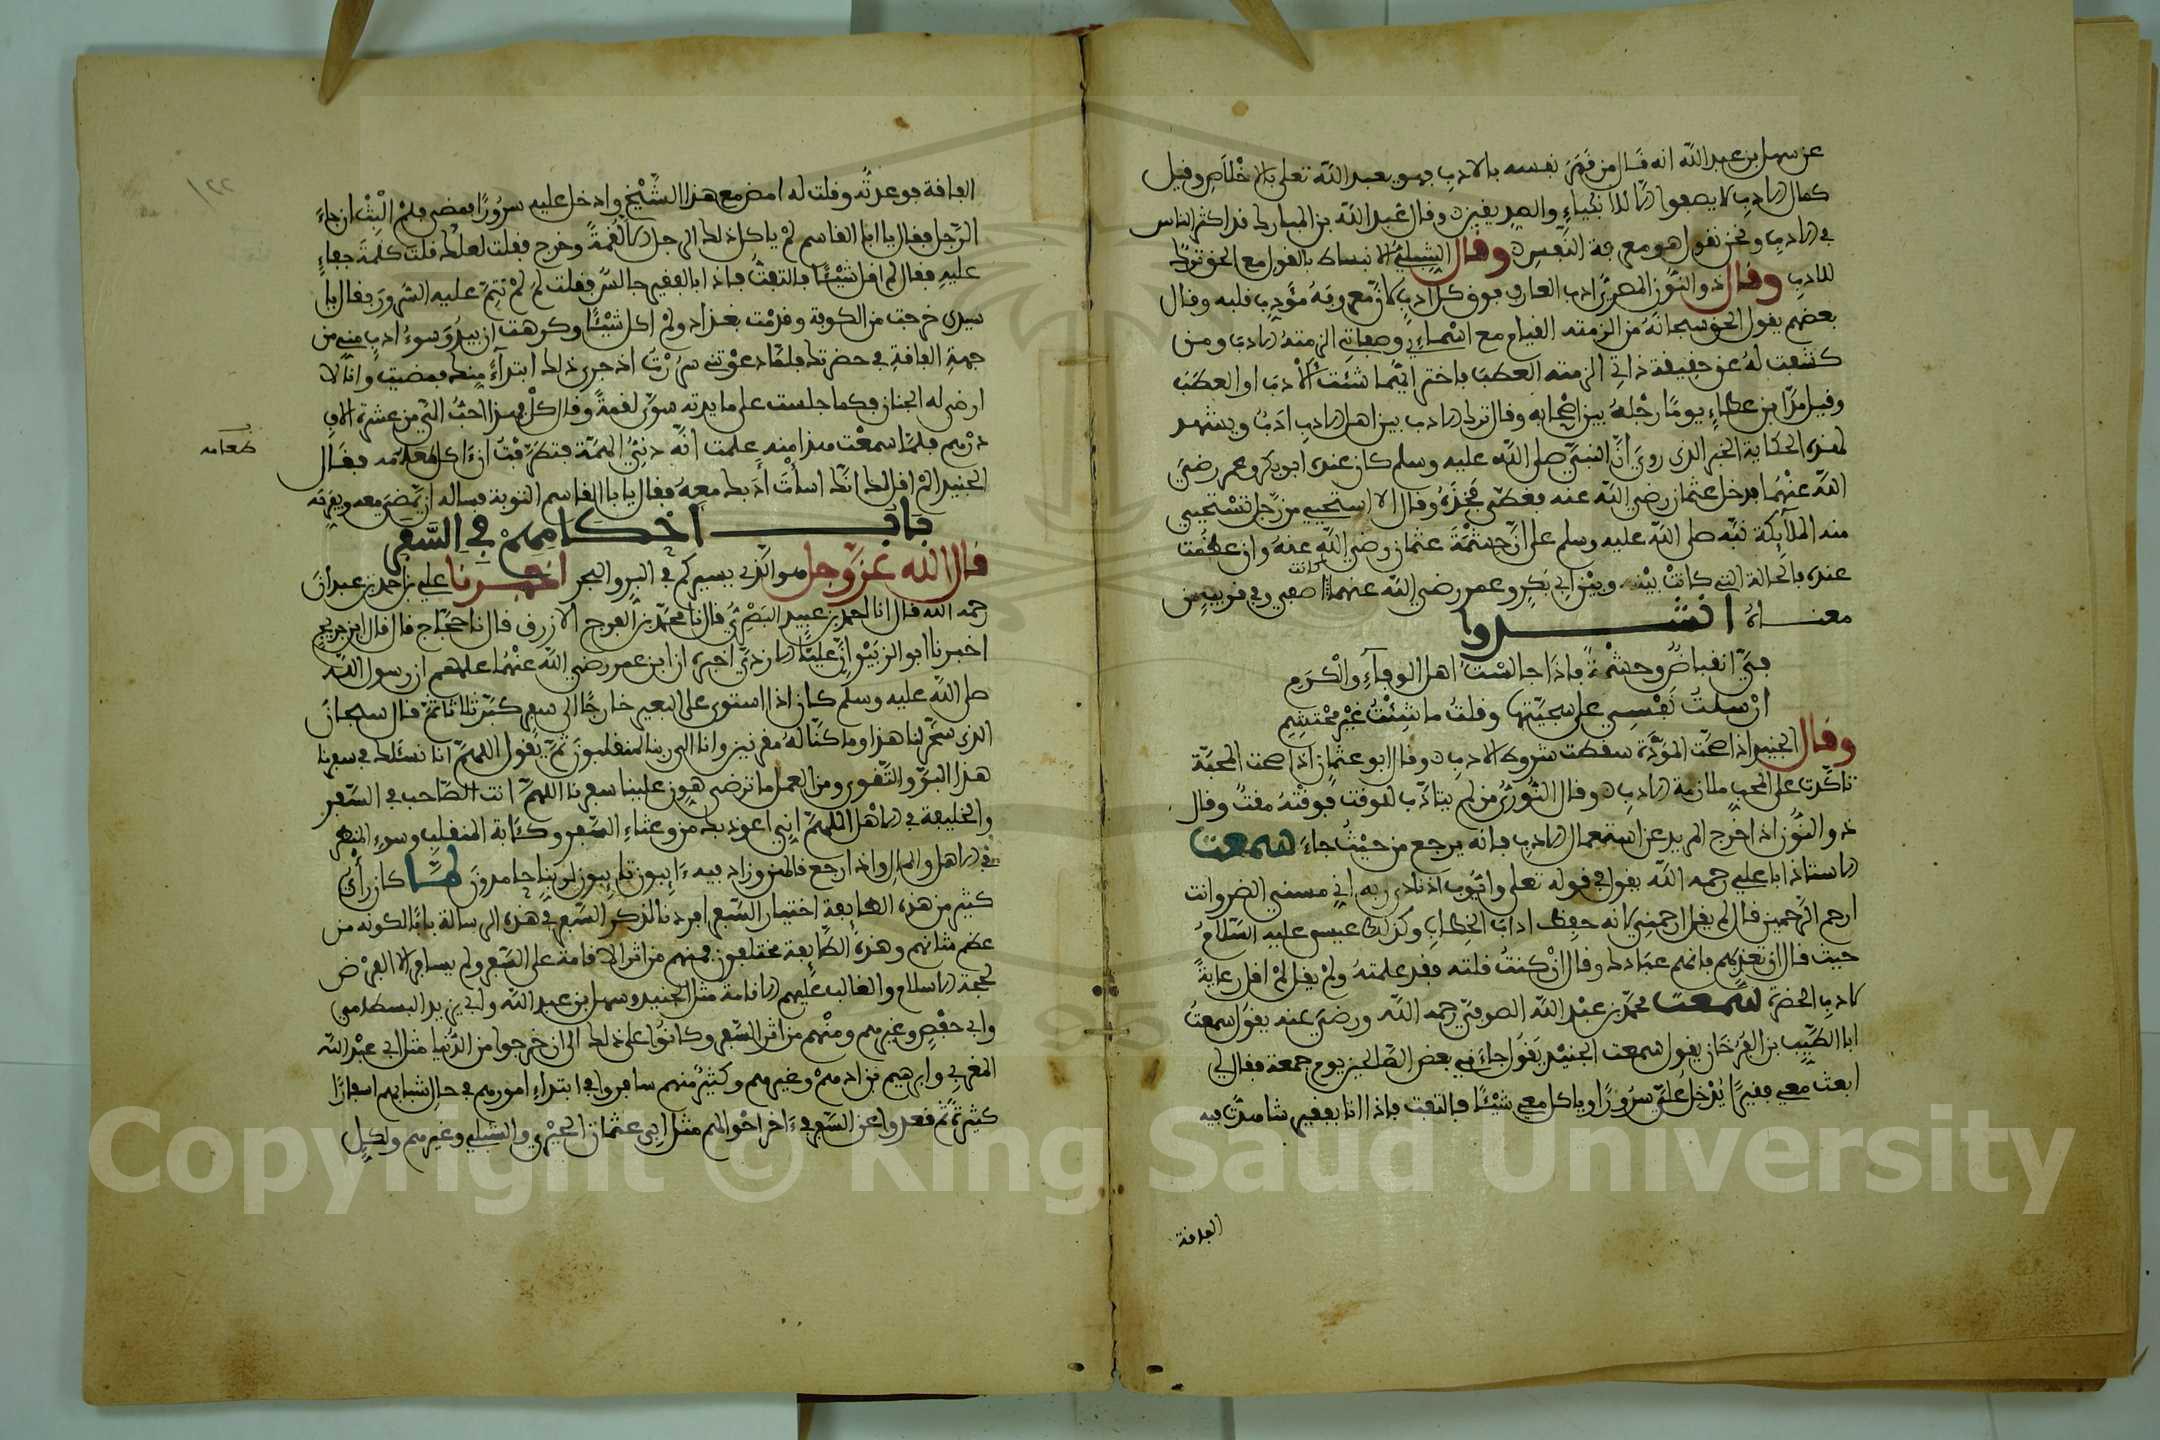 عن سهل بن عبد الله انه قال من قهر نفسه بالادب فهو يعبد الله تعلى بالاخلاص وقيل
كمال الادب لا يصفوا الا للانبياء والصديقين وقال عبد الله بن المبارك قد اكثر الناس
في الادب ونحن نقول هو معرفة النفس وقال الشبلي الانبساط بالقول مع الحق ترك
للادب وقال ذو النون المصري ادب العارف فوق كل ادب لان معروفه مؤدب قلبه وقال
بعضهم يقول الحق سبحانه من الزمته القيام مع اسماءي وصفاتي الزمته الادب ومن
كشفت له عن حقيقة ذاتي الزمته العطب فاختر ايما شئت الادب او العطب
وقيل مد ابن عطاء يوما رجله بين اصحابه وقال ترك الادب بين اهل الادب ادب ويشهد
لهذه الحكاية الخبر الذي روي ان النبي صلى الله عليه وسلم كان عنده ابو بكر وعمر رضي
الله عنهما فدخل عثمان رضي الله عنه فغطى فخذه وقال الا استحيي من رجل تستحيي
منه الملائكة نبه صلى الله عليه وسلم على ان حشمة عثمان رضي الله عنه وان عظمت
عنده فالحالة التي كانت بينه وبين ابي بكر وعمر رضي الله عنهما كانت اصفى وفي قريب من
معناه انشدوا
في انقباض وحشمة فاذا جالست اهل الوفاء والكرم
ارسلت نفسي على سجيتها وقلت ما شئت غير محتشم
وقال الجنيد اذا صحت المودة سقطت شروط الادب وقال ابو عثمان اذا صحت المحبة
تاكدت على المحب ملازمة الادب وقال النوري من لم يتادب للوقت فوقته مقت وقال
ذو النون اذا خرج المريد عن استعمال الادب فانه يرجع من حيث جاء سمعت
الاستاذ ابا علي رحمه الله يقول في قوله تعلى وايوب اذ نادى ربه اني مسني الضر وانت
ارحم الرحمين قال لم يقل ارحمني لانه حفظ اداب الخطاب وكذلك عيسى عليه السلام
حيث قال ان تعذبهم فانهم عبادك وقال ان كنت قلته فقد علمته ولم يقل لم اقل رعاية
لادب الحضرة سمعت محمد بن عبد الله الصوفي رحمه الله ورضي عنه يقول سمعت
ابا الطيب بن الفرخان يقول سمعت الجنيد يقول جاءني بعض الصالحين يوم جمعة فقال لي
ابعث معي فقيرا يدخل علي سرورا وياكل معي شيئا فالتفت فاذا انا بفقير شاهدت فيه
الفاقة
الفاقة فدعوته وقلت له امض مع هذا الشيخ وادخل عليه سرورا فمضى فلم البث ان جاء
الرجل فقال يا ابا القاسم لم ياكل ذلك الرجل الا لقمة وخرج فقلت لعلك قلت كلمة جفاء
عليه فقال لم اقل شيئا فالتفت فاذا بالفقير جالس فقلت له لم لم تتم عليه السرور فقال يا
سيدي خرجت من الكوفة وقدمت بغداد ولم اكل شيئا وكرهت ان يبدو سوء ادب مني من
جهة الفاقة في حضرتك فلما دعوتني سررت اذ جرى ذلك ابتداء منك فمضيت وانا لا
ارضى له الجنان فكما جلست على مايدته سوى لقمة وقال كل فهذا احب الي من عشرة الاف
درهم فلما سمعت هذا منه علمت انه دني الهمة فتطرفت ان ءاكل طعامه فقال
طعامه
الجنيد الم اقل لك انك اسأت أدبك معه فقال يا با القاسم التوبة فساله ان يمضي معه ويفرحه
باب احكامهم في السفر
قال الله عز وجل هو الذي يسيركم في البر والبحر اخبرنا علي بن احمد بن عبدان
رحمه الله قال انا احمد بن عبيد البصري قال نا محمد بن الفرج الازرق قال نا حجاج قال قال ابن جريج
اخبرنا ابو الزبير ان عليا الازدي اخبره ان ابن عمر رضي الله عنهما علمهم ان رسول الله
صلى الله عليه وسلم كان اذا استوى على البعير خارجا الى سفر كبر ثلاثا ثم قال سبحان
الذي سخر لنا هذا وما كنا له مقرنين وانا الى ربنا لمنقلبون ثم يقول اللهم انا نسئلك في سفرنا
هذا البر والتقوى ومن العمل ما ترضى هون علينا سفرنا اللهم انت الصاحب في السفر
والخليفة في الاهل اللهم اني اعوذ بك من وعثاء السفر وكئابة المنقلب وسوء المنظر
في الاهل والمال واذا رجع قالهن وزاد فيه ءايبون تايبون لربنا حامدون لما كان رأي
كثير من هذه الطايفة اختيار السفر افردنا لذكر السفر في هذه الرسالة بابا لكونه من
عظم شانهم وهذه الطايفة مختلفون فمنهم من اثر الاقامة على السفر ولم يسافر الا لفرض
كحجة الاسلام والغالب عليهم الاقامة مثل الجنيد وسهل بن عبد الله وابي يزيد البسطامي
وابي حفص وغيرهم ومنهم من اثر السفر وكانوا على ذلك الى ان خرجوا من الدنيا مثل ابي عبد الله
المغربي وابرهيم بن ادهم وغيرهم وكثير منهم سافروا في ابتداء امورهم في حال شبابهم اسفارا
كثيرة ثم قعدوا عن السفر في ءاخر احوالهم مثل ابي عثمان الحيري والشبلي وغيرهم ولكل
١٢٢
Copyright © King Saud University